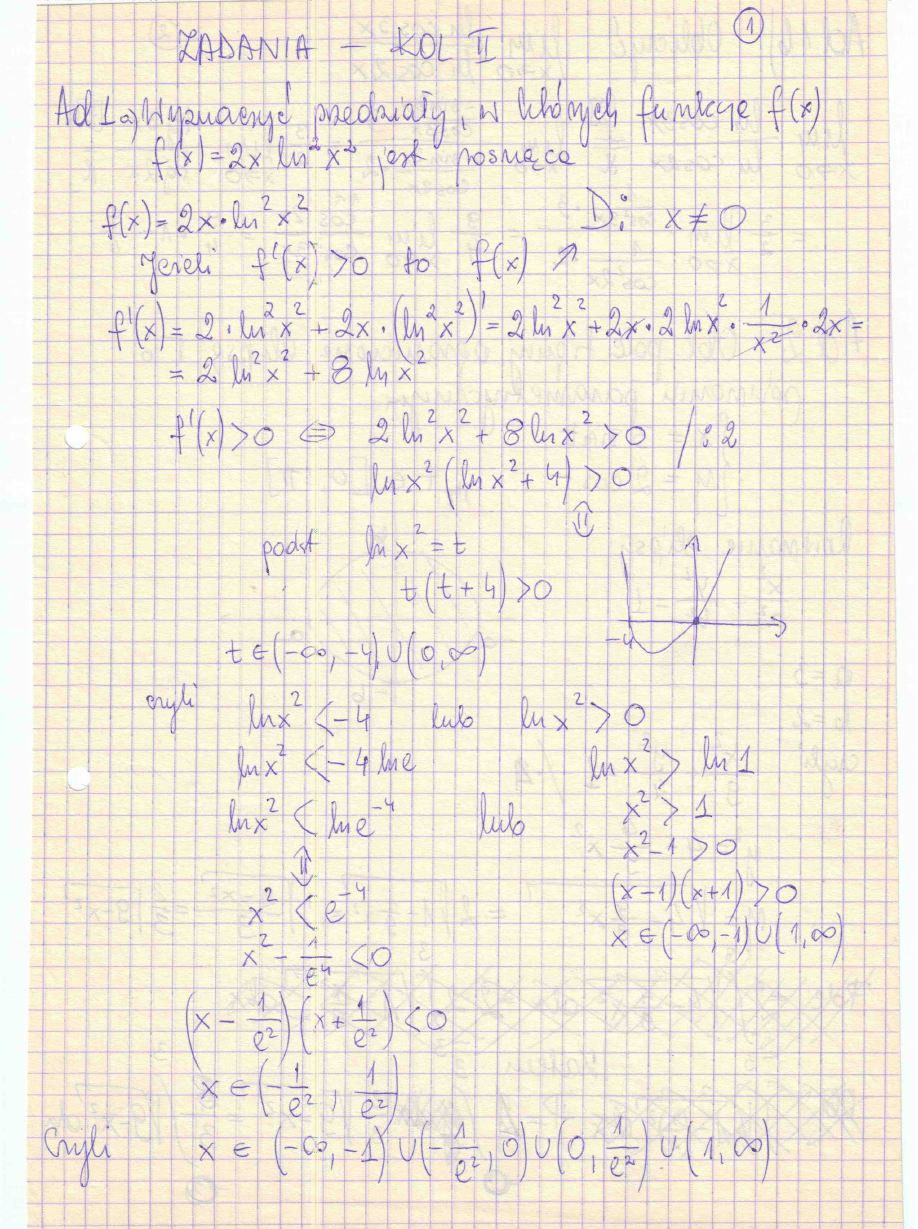 ①
ZADANIA – KOL II
Ad 1 a) Wyznaczyć przedziały, w których funkcja f(x)
f(x) = 2x ln²x² jest rosnąca
f(x) = 2x·ln²x²   D: x ≠ 0
Jeżeli f'(x) > 0 to f(x) ↗
f'(x) = 2·ln²x² + 2x·(ln²x²)' = 2ln²x² + 2x·2 lnx²·1/x²·2x =
= 2 ln²x² + 8 lnx²
f'(x) > 0 ⇔ 2 ln²x² + 8 lnx² > 0 /:2
lnx² (lnx² + 4) > 0
⇕
podst lnx² = t
t(t+4) > 0
-4
t ∈ (-∞, -4) ∪ (0, ∞)
czyli
lnx² < -4 lub lnx² > 0
lnx² < -4 lne   lnx² > ln1
lnx² < lne⁻⁴ lub x² > 1
⇕   x²-1 > 0
x² < e⁻⁴   (x-1)(x+1) > 0
x² - 1/e⁴ < 0   x ∈ (-∞, -1) ∪ (1, ∞)
(x - 1/e²)(x + 1/e²) < 0
x ∈ (-1/e², 1/e²)
Czyli x ∈ (-∞, -1) ∪ (-1/e², 0) ∪ (0, 1/e²) ∪ (1, ∞)